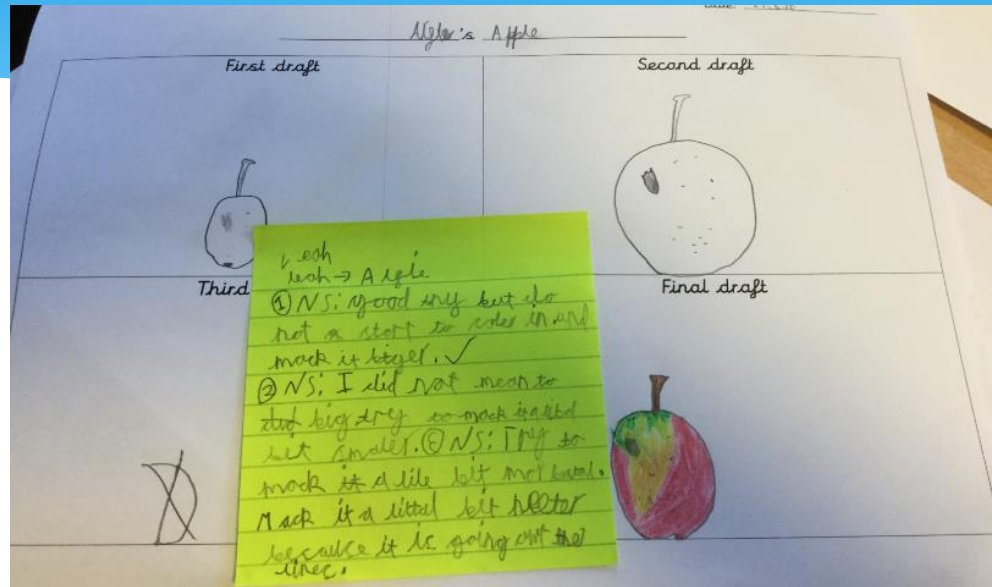 Apple
First draft
Second draft
Third
Final draft
Leah
leah →
① NS: good try but do
not start to coler in and
mack it biger. ✓
② NS: I did not mean to
big try to mack it
bit smaler. NS: Try to
mack it a litle bit mor
Mack it a littal bit neeter
because it is going out the
lines.